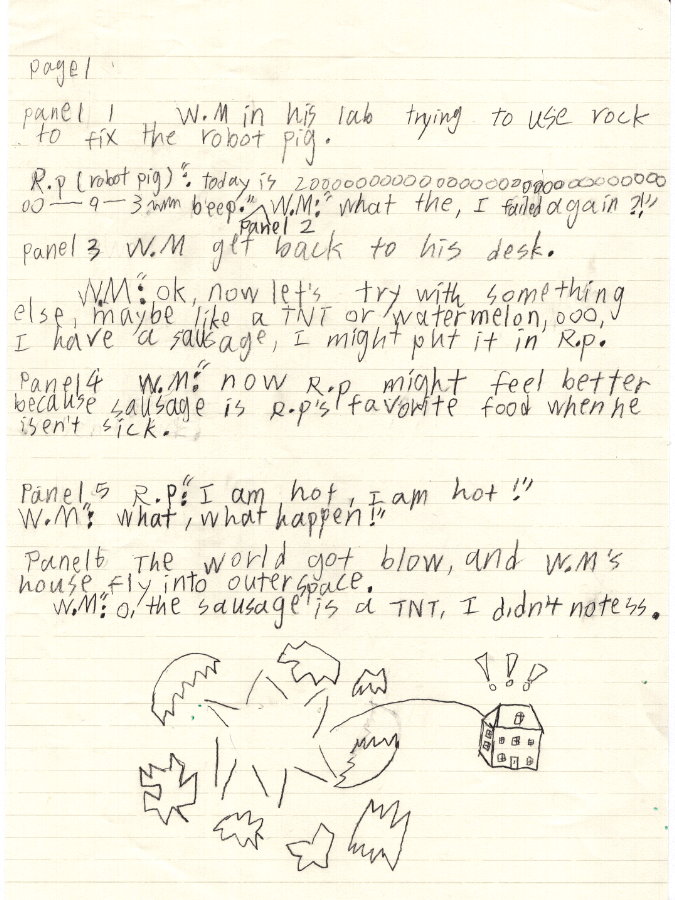 page 1
panel 1 W.M in his lab trying to use rock
to fix the robot pig.
R.p (robot pig)": today is 2000000000000000000000000000000
00 — 9 — 3 mm beep." W.M:" what the, I failed again ?!"
Panel 2
panel 3 W.M get back to his desk.
W.M": ok, now let's try with something
else, maybe like a TNT or watermelon, ooo,
I have a sausage, I might put it in R.p.
Panel 4 W.M:" now R.p might feel better
because sausage is R.p's favorite food when he
isen't sick.
Panel 5 R.P:" I am hot, I am hot !"
W.M": what, what happen!"
Panel 6 The world got blow, and W.M's
house fly into outerspace.
W.M:" o, the sausage is a TNT, I didn't notess.
! ! !